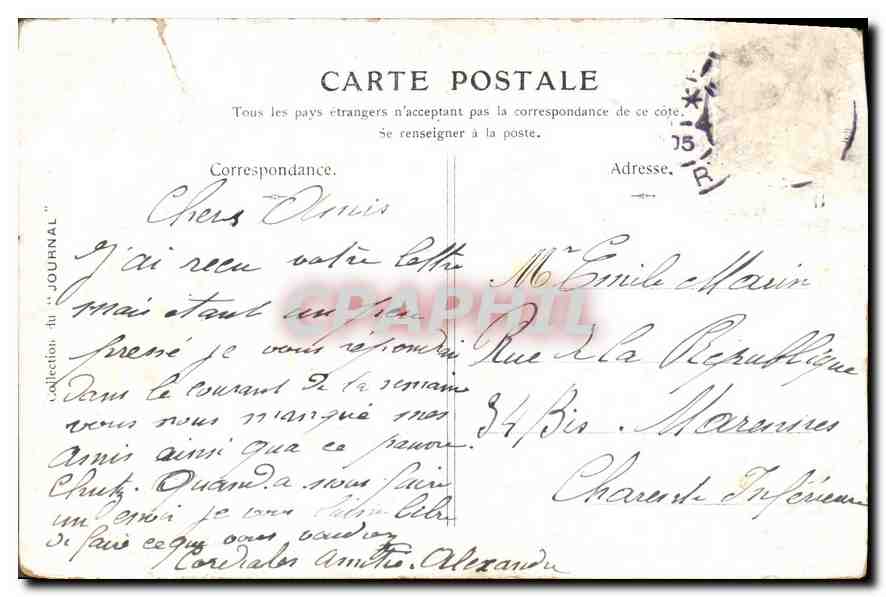 CARTE POSTALE
Tous les pays étrangers n'acceptant pas la correspondance de ce côté.
Se renseigner à la poste.
Correspondance.
Adresse.
Collection du "JOURNAL"
05
R
CPAPHIL
Chers Amis
J'ai reçu votre lettre
mais étant un peu
pressé je vous répondrai
dans le courant de la semaine
vous nous manqué mes
Amis ainsi qua ce pauvre
Quand a nous faire
un envoi je vous libre
de faire ce que vous voudrez
Cordiales Amitiés. Alexandre
Mr Emile Marin
Rue de la République
34 Bis. Marennes
Charente Inférieure